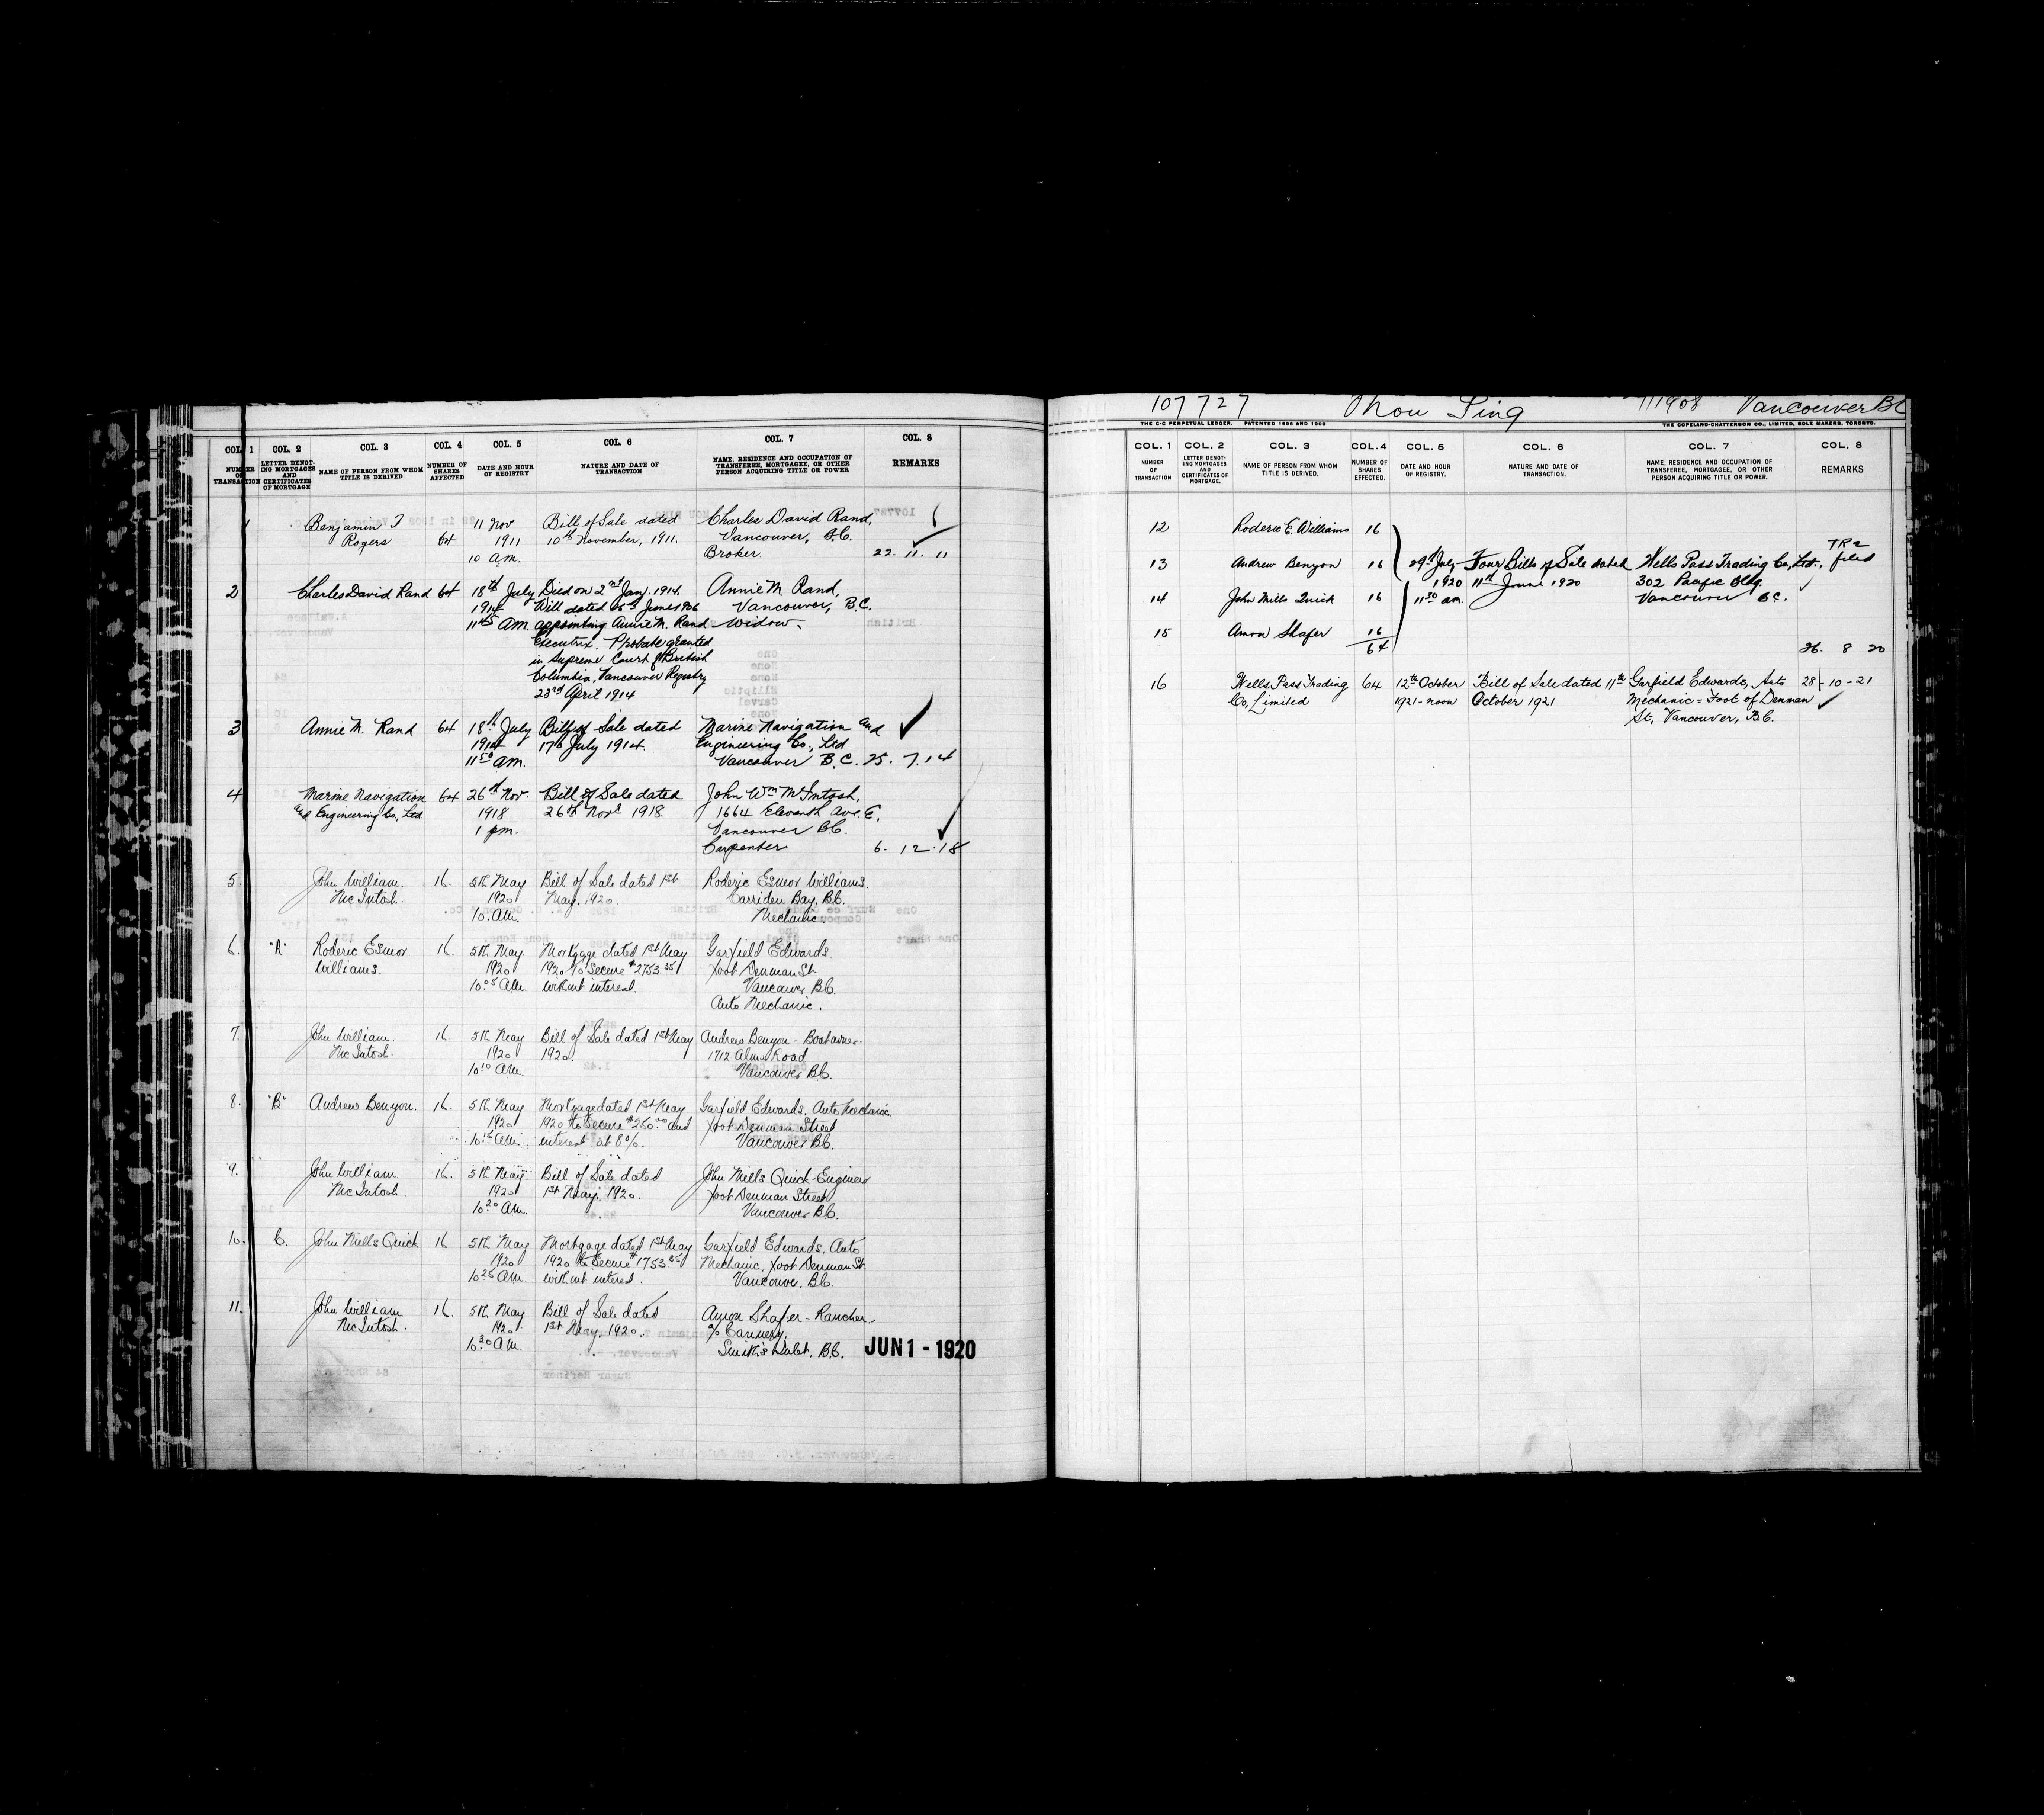 COL. 1 COL. 2 COL. 3 COL. 4 COL. 5 COL. 6 COL. 7 COL. 8
NUMBER OF TRANSACTION
LETTER DENOTING MORTGAGES AND CERTIFICATES OF MORTGAGE
NAME OF PERSON FROM WHOM TITLE IS DERIVED
NUMBER OF SHARES AFFECTED
DATE AND HOUR OF REGISTRY
NATURE AND DATE OF TRANSACTION
NAME, RESIDENCE AND OCCUPATION OF TRANSFEREE, MORTGAGEE, OR OTHER PERSON ACQUIRING TITLE OR POWER
REMARKS
1 Benjamin T 11 Nov Bill of Sale dated Charles David Rand,
Rogers 64 1911 10th November, 1911. Vancouver, B.C.
10 a.m. Broker 22. 11. 11
2 Charles David Rand 64 18th July Died on 2nd Jany. 1914. Annie M. Rand,
1914 Will dated June 1906 Vancouver, B.C.
11 45 AM appointing Annie M. Rand Widow.
Executrix. Probate granted
in Supreme Court of British
Columbia, Vancouver Registry
23rd April 1914
3 Annie M. Rand 64 18th July Bill of Sale dated Marine Navigation and
1914 17th July 1914. Engineering Co., Ltd
11 50 am. Vancouver B.C. 25. 7. 14
4 Marine Navigation 64 26th Nov. Bill of Sale dated John Wm McIntosh,
and Engineering Co., Ltd. 1918 26th Novr 1918. 1664 Eleventh Ave. E,
1 pm. Vancouver B.C.
Carpenter 6. 12. 18
5. John William 16. 5th May Bill of Sale dated 1st Roderic Esmor Williams.
McIntosh. 1920 May, 1920. Carriden Bay, B.C.
10. A.M. Mechanic.
6. "A" Roderic Esmor 16. 5th May Mortgage dated 1st May Garfield Edwards.
Williams. 1920 1920 to Secure $2753.35 foot Denman St.
10.05 A.M. without interest. Vancouver B.C.
Auto Mechanic.
7. John William 16. 5th May Bill of Sale dated 1st May Andrew Benyon - Boatowner
McIntosh. 1920 1920. 1712 Alma Road
10 10 A.M. Vancouver B.C.
8. "B" Andrew Benyon. 16. 5th May Mortgage dated 1st May Garfield Edwards. Auto Mechanic
1920 1920 to Secure $250.00 and foot Denman Street
10 15 A.M. interest at 8%. Vancouver B.C.
9. John William 16. 5th May Bill of Sale dated John Mills Quick - Engineer
McIntosh. 1920 1st May, 1920. foot Denman Street
10.20 A.M. Vancouver B.C.
10. C. John Mills Quick 16 5th May Mortgage dated 1st May Garfield Edwards. Auto
1920 1920 to Secure $1753.35 Mechanic, foot Denman St.
10 25 A.M. without interest. Vancouver, B.C.
11. John William 16. 5th May Bill of Sale dated Amon Shafer - Rancher.
McIntosh. 1920 1st May, 1920. c/o Cannery,
10.30 A.M. Smith's Inlet, B.C. JUN 1 - 1920
107727 Hou Sing 11/1908 Vancouver BC
THE C-C PERPETUAL LEDGER. PATENTED 1896 AND 1900
THE COPELAND-CHATTERSON CO., LIMITED, SOLE MAKERS, TORONTO.
COL. 1 COL. 2 COL. 3 COL. 4 COL. 5 COL. 6 COL. 7 COL. 8
NUMBER OF TRANSACTION
LETTER DENOTING MORTGAGES AND CERTIFICATES OF MORTGAGE.
NAME OF PERSON FROM WHOM TITLE IS DERIVED.
NUMBER OF SHARES EFFECTED.
DATE AND HOUR OF REGISTRY.
NATURE AND DATE OF TRANSACTION.
NAME, RESIDENCE AND OCCUPATION OF TRANSFEREE, MORTGAGEE, OR OTHER PERSON ACQUIRING TITLE OR POWER.
REMARKS
12 Roderic E. Williams 16
13 Andrew Benyon 16 29th July Four Bills of Sale dated Wells Pass Trading Co., Ltd., TR 2 filed
1920 11th June 1920 302 Pacific Bldg.
14 John Mills Quick 16 11 30 am. Vancouver B.C.
15 Amon Shafer 16
64
26. 8 20
16 Wells Pass Trading 64 12th October Bill of Sale dated 11th Garfield Edwards, Auto 28 - 10 - 21
Co, Limited 1921 - noon October 1921 Mechanic - Foot of Denman
St., Vancouver, B.C.